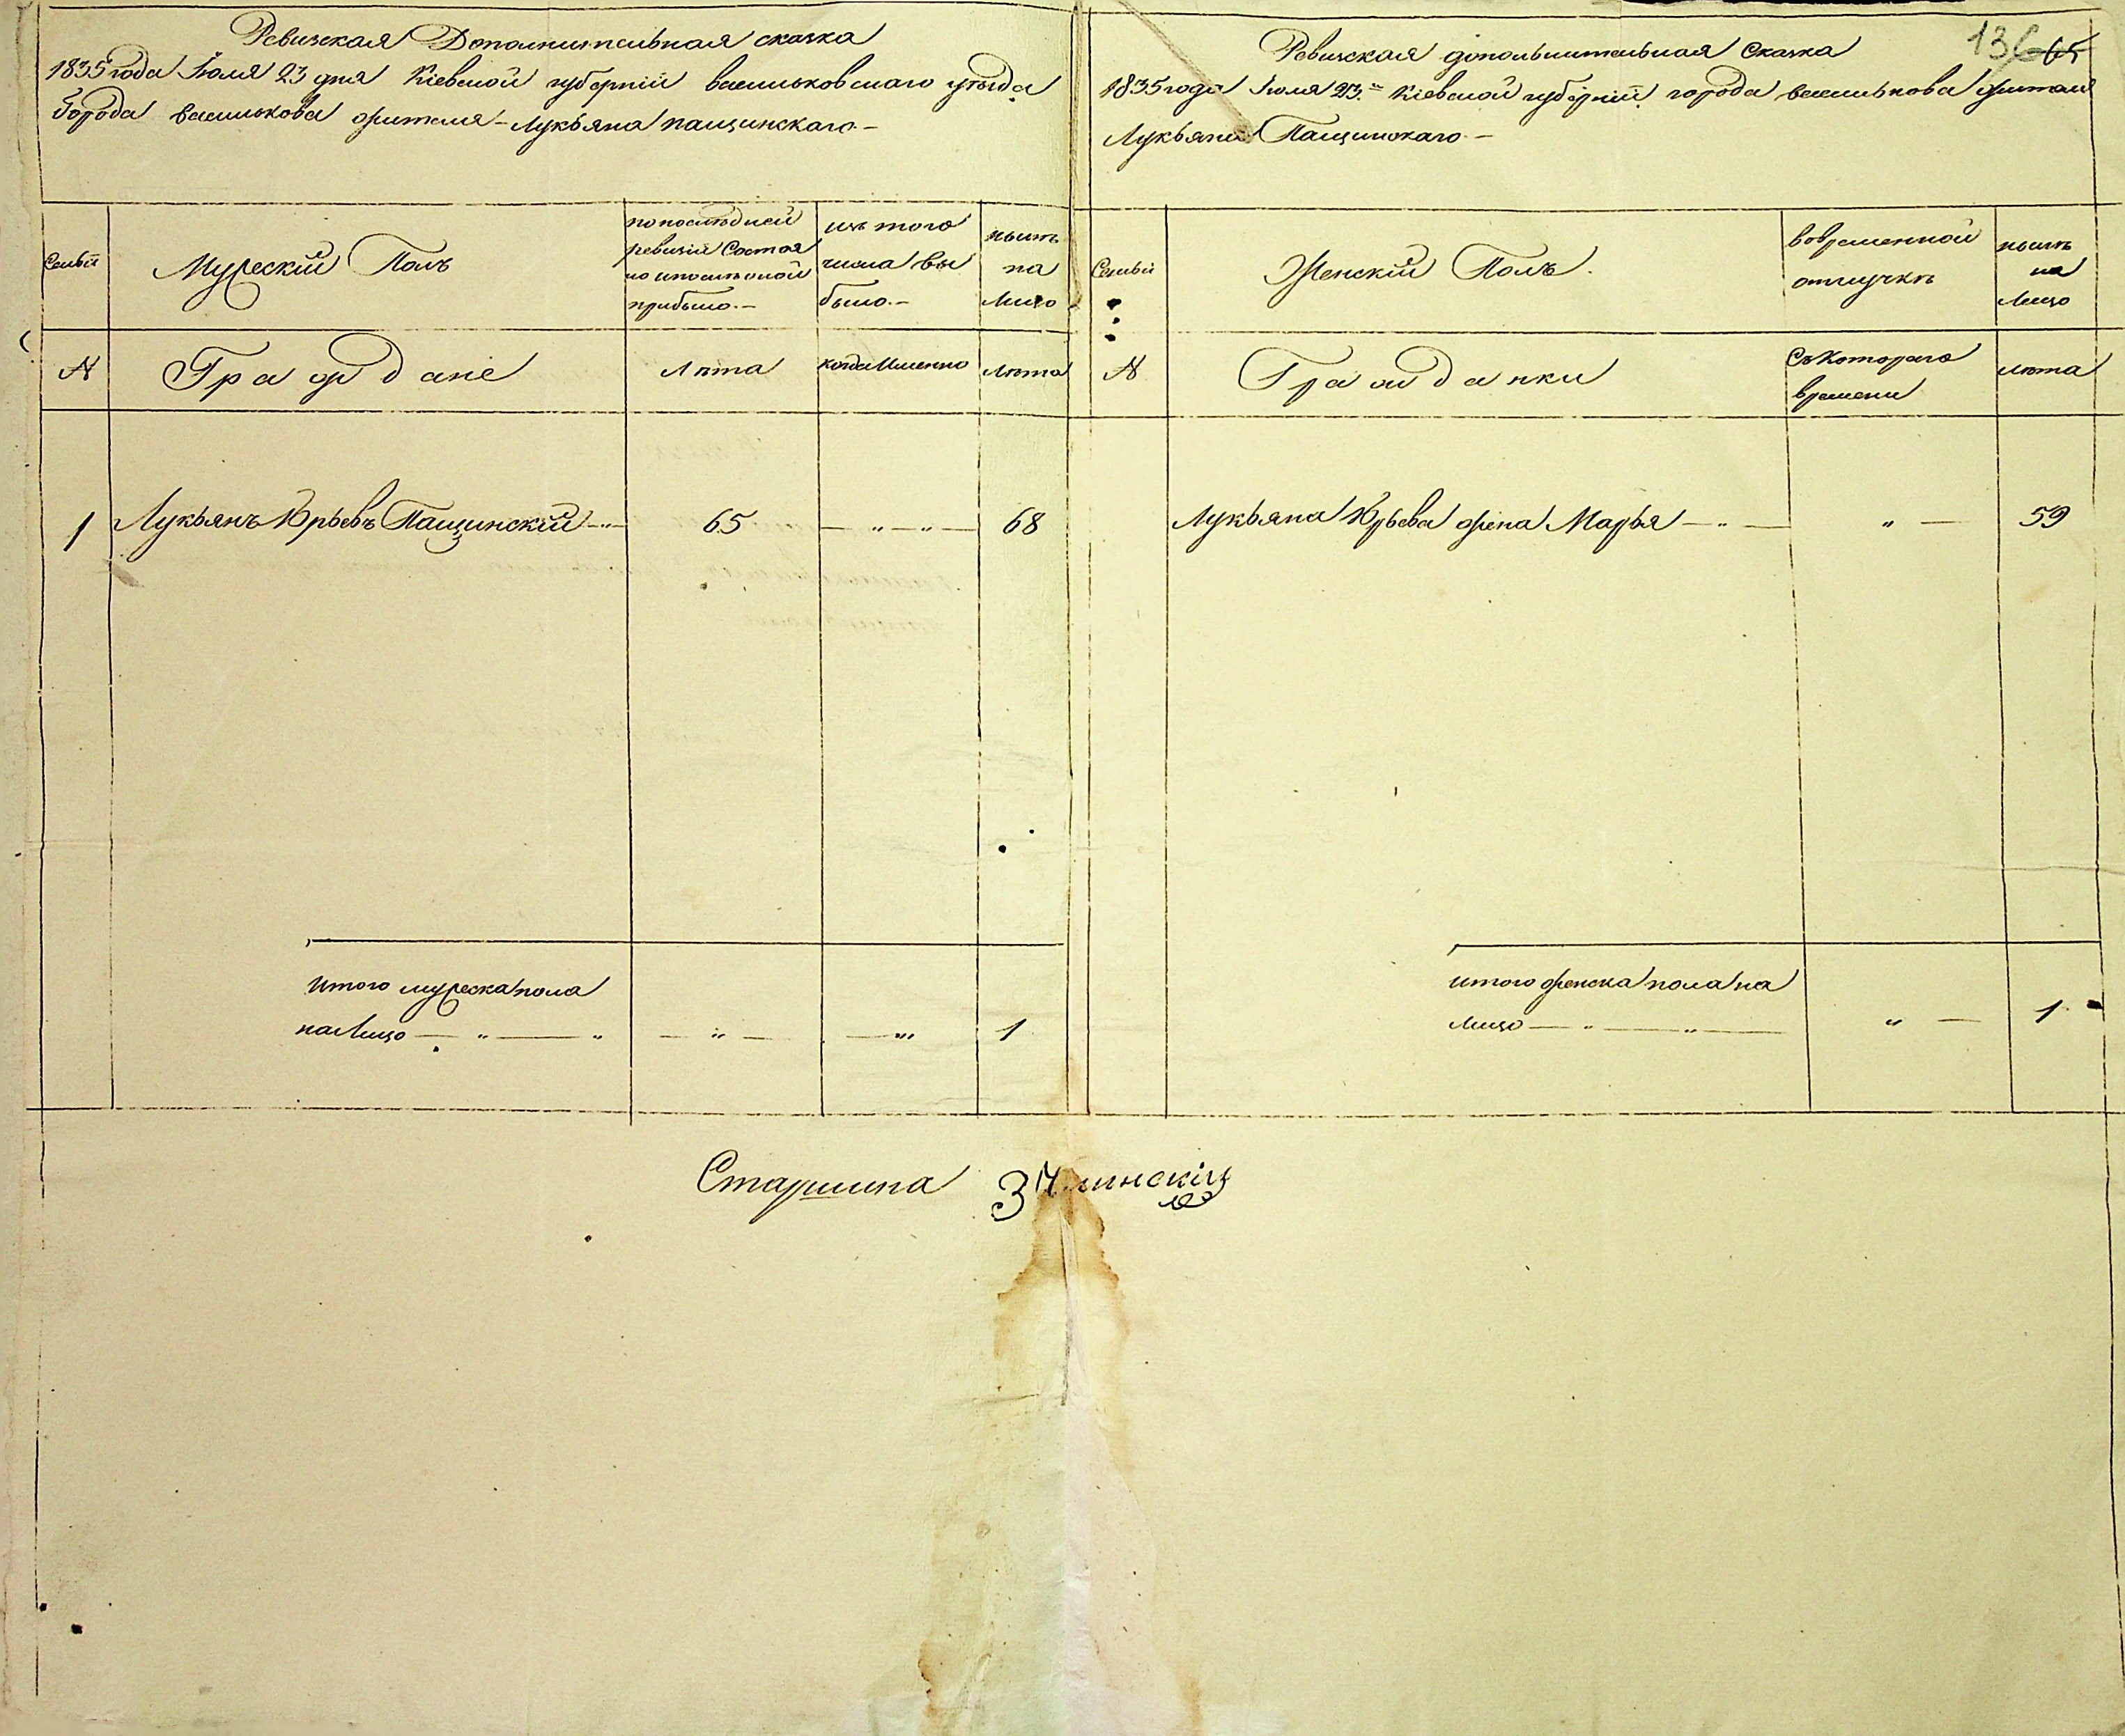 Ревизская Дополнительная сказка
1835 года Іюля 23 дня Кіевской губерніи васильковскаго уезда
Города василькова жителя - Лукьяна пащинскаго. -
Семьи
Мужескій Полъ
по последней
ревизіи Состоя
ло и после оной
прибыло. -
изъ того
числа вы
было. -
ныне
на
Лицо
№
Граждане
Лета
когда Именно
Лета
1
Лукьянъ Юрьевъ Пащинскій - " -
65
— " — " —
68
итого мужеска пола
на Лицо — " — "
— " —
— "
1
136 65
Ревизская дополнительная Сказка
1835 года Іюля 23. Кіевской губерніи города василькова жителя
Лукьяна Пащинскаго. -
Семьи
Женскій Полъ.
во временной
отлучке
ныне
на
Лицо
№
Гражданки
Съ Котораго
времени
лета
Лукьяна Юрьева жена Марья — " —
" —
59
итого женска пола на
лицо — " — " —
" —
1
Старшина